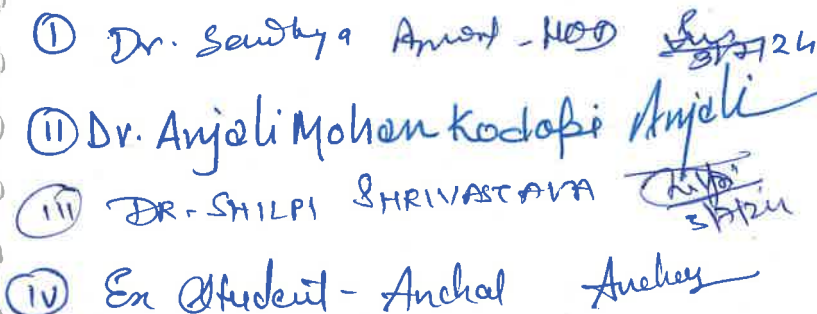 ① Dr. Sandhya Anand - HOD 3/7/24
⑪ Dr. Anjali Mohan Kodape Anjali
(iii) DR. SHILPI SHRIVASTAVA Shilpi 3/7/24
(iv) Ex Student - Anchal Anchey